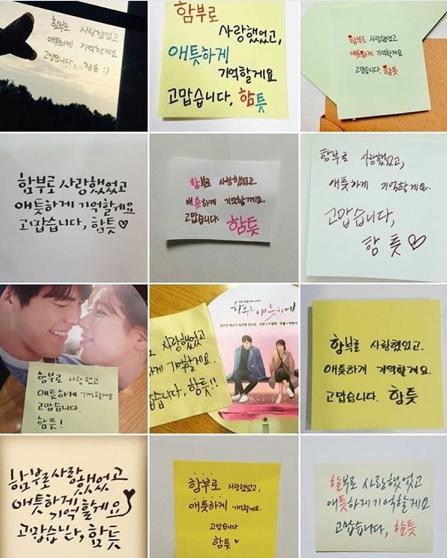 함부로 사랑했었고
애틋하게 기억할게요
고맙습니다, 함틋 :)
함부로
사랑했었고,
애틋하게
기억할게요
고맙습니다, 함틋
함부로 사랑했었고
애틋하게 기억할게요
고맙습니다 함틋
함부로 사랑했었고
애틋하게 기억할게요
고맙습니다, 함틋♡
함부로 사랑했었고.
애틋하게 기억할게요.
고맙습니다 함틋
함부로 사랑했었고,
애틋하게 기억할게요.
고맙습니다,
함틋♡
함부로 사랑했었고
애틋하게 기억할게요
고맙습니다.
함틋!
사랑했었고
기억할게요.
습니다, 함틋!!
함부로 애틋하게
함부로 사랑했었고.
애틋하게 기억할게요.
고맙습니다. 함틋
함부로 사랑했었고
애틋하게 기억할게요
고맙습니다, 함틋
함부로 사랑했었고,
애틋하게 기억할게요.
고맙습니다
함틋♥
함부로 사랑했었고
애틋하게 기억할게요
고맙습니다, 함틋